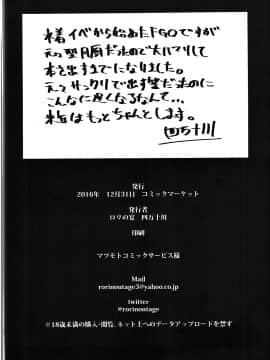 様イベから始めたFGOですが
元々型月厨だったので大ハマりして
本を出すまでになりました。
元々サックリで出す望だったのに
こんなに遅くなるなんて…
次はもっとちゃんとします。
四万十川
発行
2016年　12月31日　コミックマーケット
発行者
ロリの宴　四万十川
印刷
マツモトコミックサービス様
Mail
rorinoutage3@yahoo.co.jp
twitter
@rorinoutage
※18歳未満の購入・閲覧、ネット上へのデータアップロードを禁ず